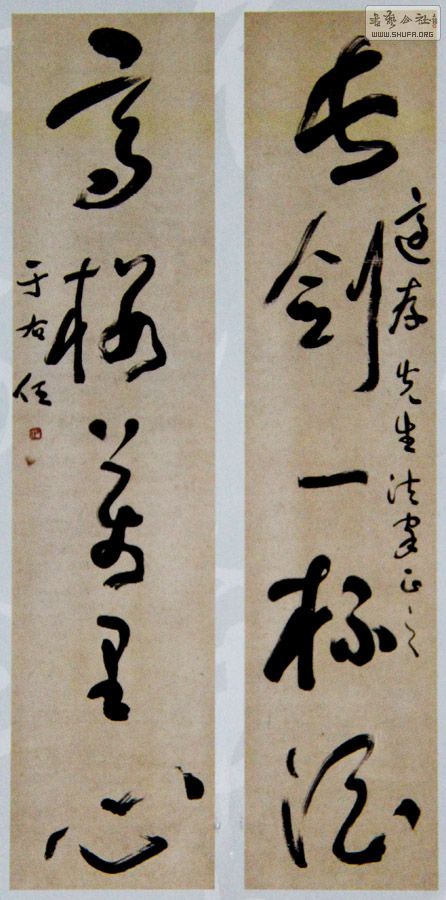 長劍一杯酒
適存先生法家正之
高樓萬里心
于右任
書藝公社
WWW.SHUFA.ORG